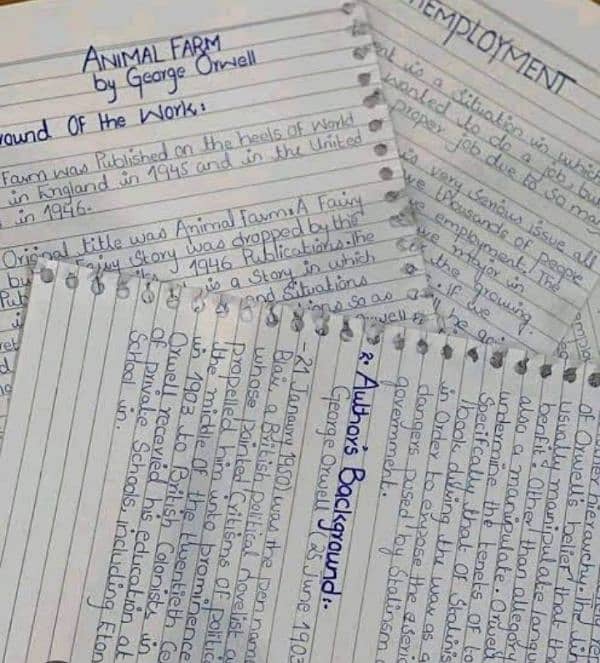 ANIMAL FARM
by George Orwell
round Of the Work:
Farm was Published on the heels of World
in England in 1945 and in the United
in 1946.
Original title was Animal Farm: A Fairy
Fairy Story was dropped by the
1946 Publications. The
is a Story in which
and Situations
so as
EMPLOYMENT
at is a Situation in which
wanted to do a job, but
proper job due to so man
is very Serious issue all
thousands of people
employment. The
major in
the growing.
. if we
2. Author's Background:.
George Orwell (25 June 1903
-21 Janaury 1950) was the pen name
Blair, a British political novelist a
whose pointed Critisms of politic
propelled him into prominence
the middle of the twentieth Ce
in 1903 to British Colonists in
Orwell recevied his education at
of private Schools, including Eton
School in..
hierarchy. the lin
of Orwell's belief that th
usually manipulate langu
benfit. Other than allegory
also a manipulate. Orwell
undermine the tenets of
Specifcaly that of Stalinis
book during the war as a
in Order to expose the a seri
dangers posed by Stalinism
government.